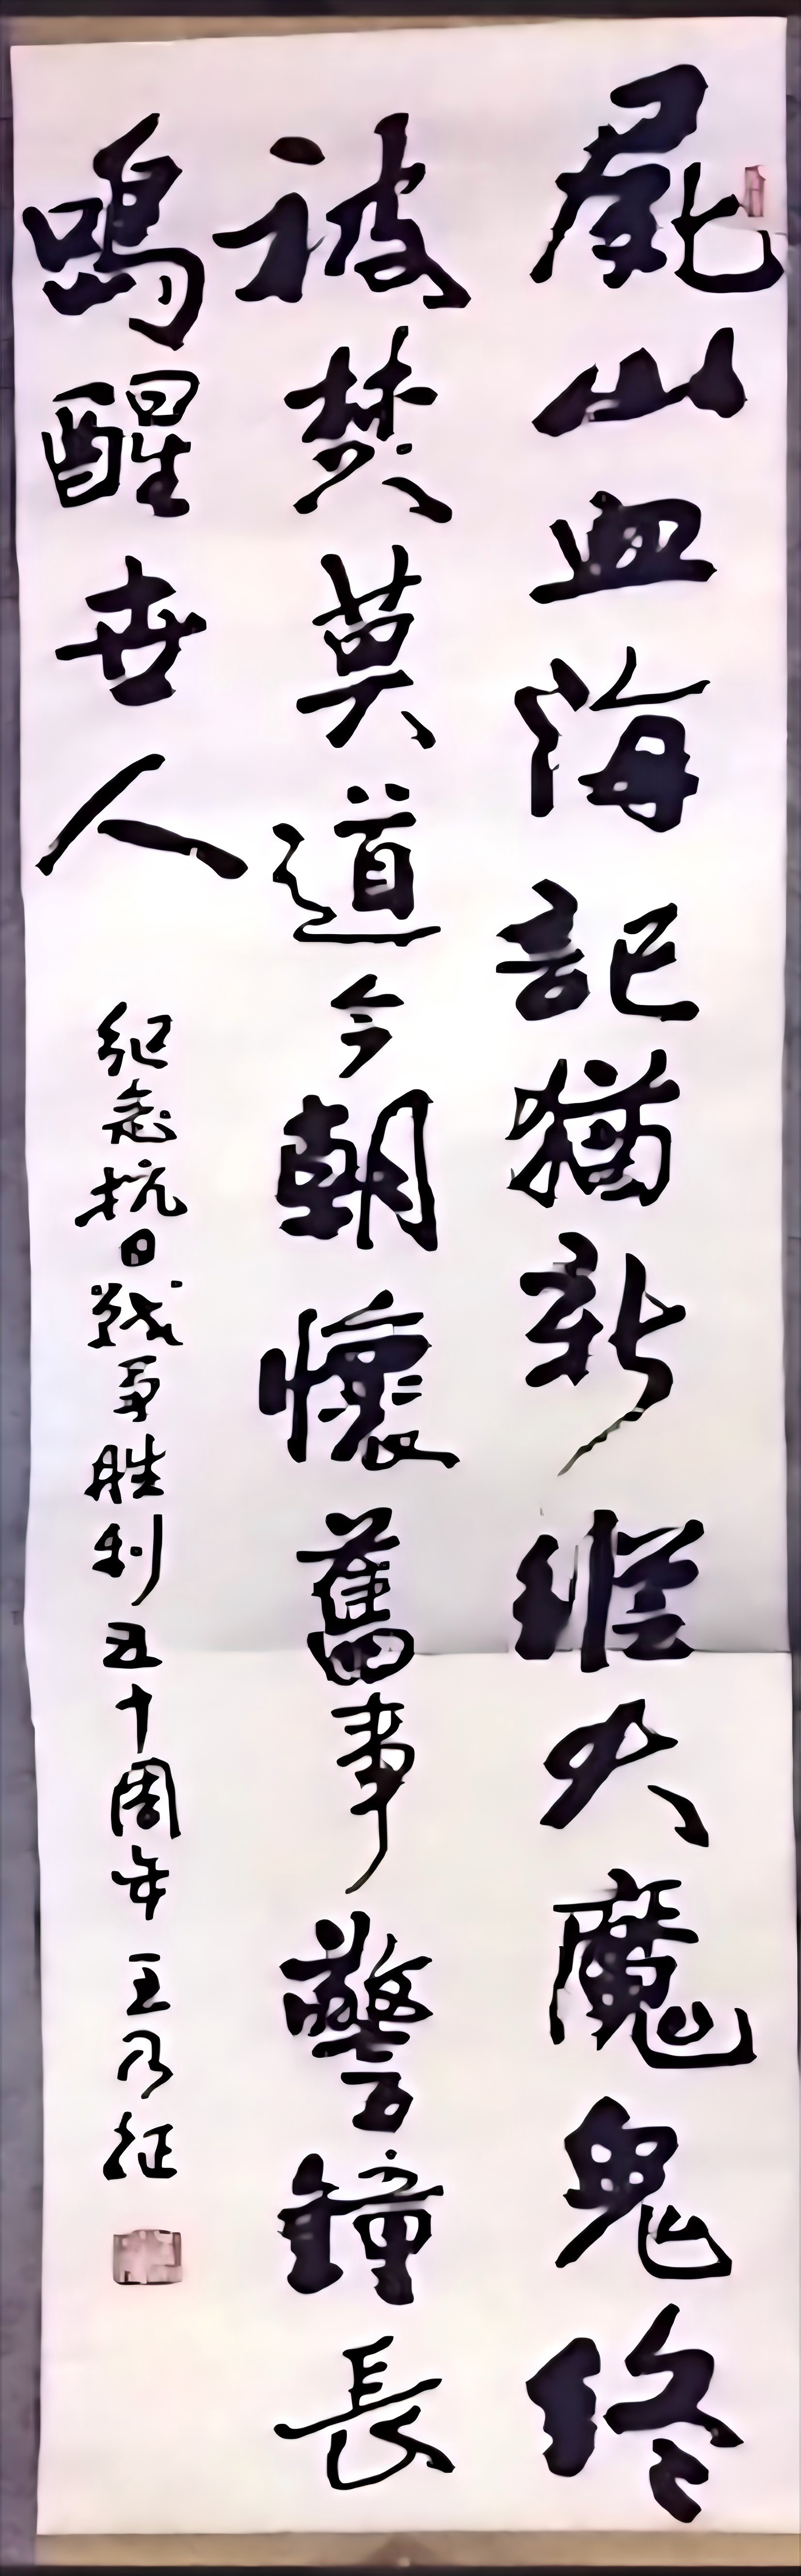 屍山血海記猶新縱火魔鬼終
被焚莫道今朝懷舊事警鐘長
鳴醒世人
纪念抗日战争胜利五十周年 王乃征